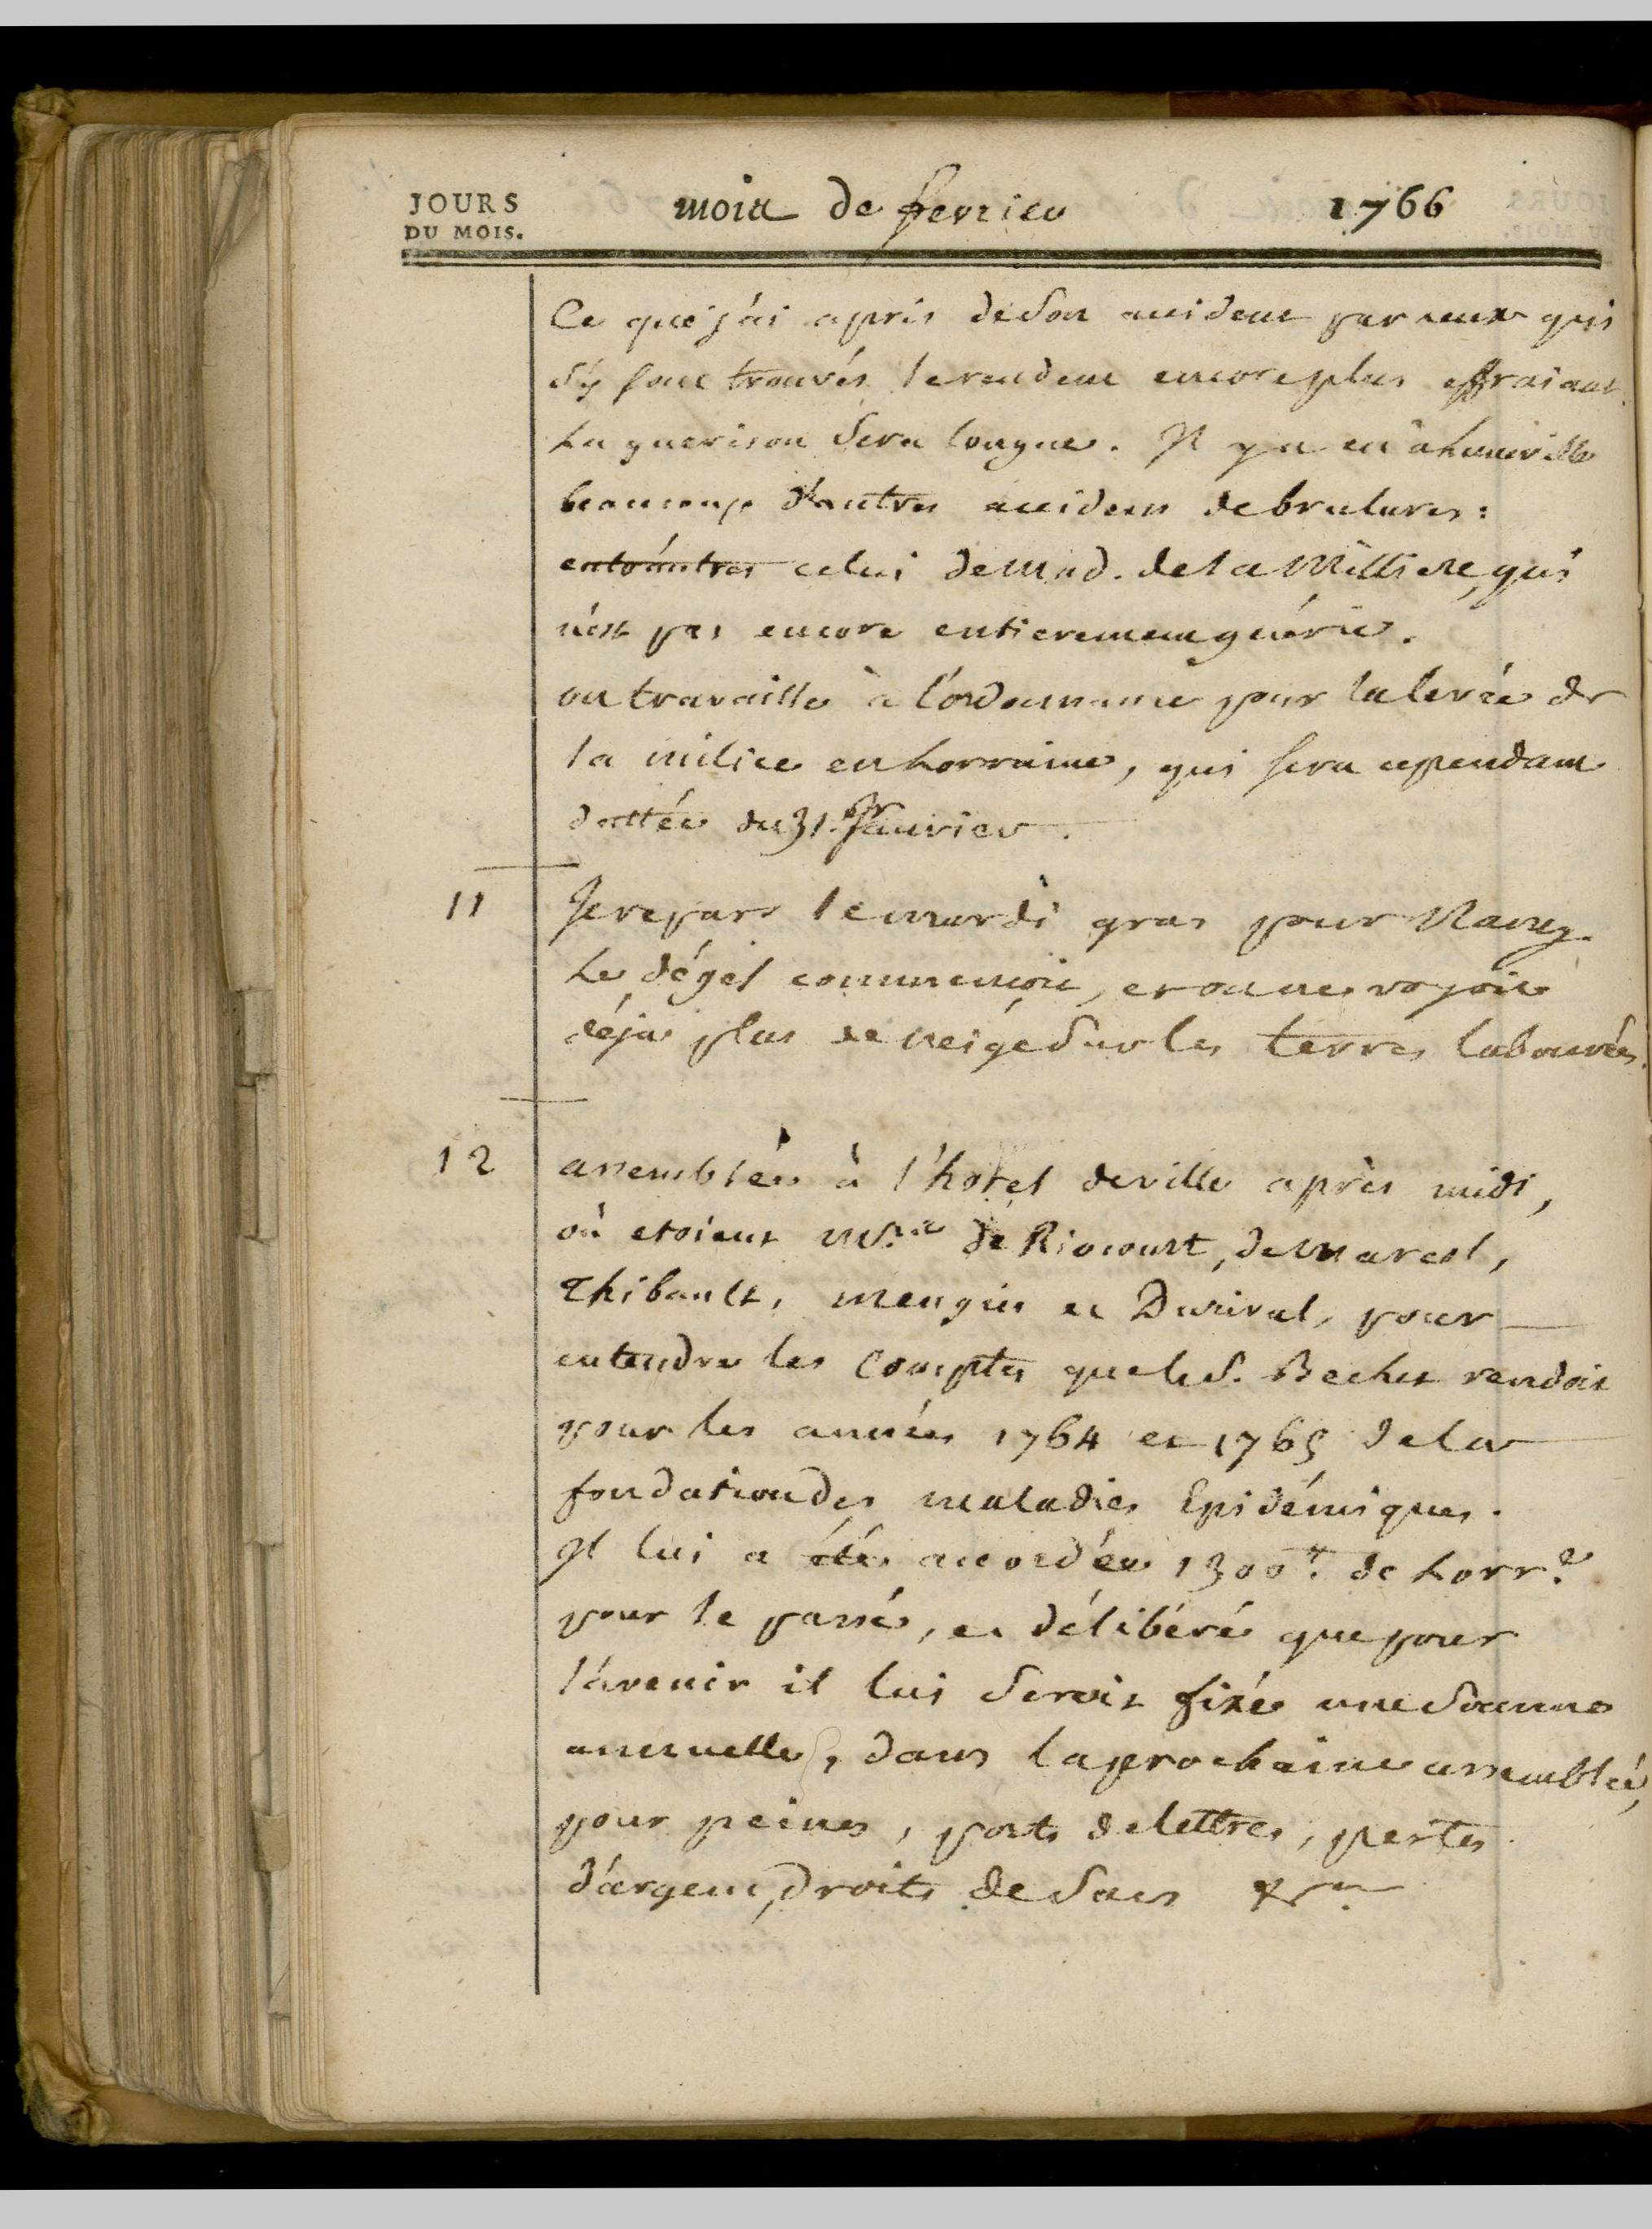 JOURS
DU MOIS.
mois de fevrier 1766
Ce que j'ai apris de son accident par ceux qui
s'y sont trouvés le rendent encore plus effraiant.
La guerison sera longue. Il y a eu à Luneville
beaucoup d'autres accidens de brulures :
entr'autres celui de Mad. de la Milliere, qui
n'est pas encore entierement guérie.
on travaille à l'ordonnance pour la levée de
la milice en Lorraine, qui sera cependant
dattée du 31. Janvier.
11 Je repars le mardi gras pour Nancy.
Le dégel commençoit, et on ne voyoit
déja plus de neige sur les terres labourées.
12 assemblée à l'hotel de ville après midi,
où etoient Mrs. de Riocourt, de Marcol,
Thibault, Mengin et Durival, pour
entendre les Comptes que le S. Bechet rendoit
pour les années 1764 et 1765 de la
fondation des maladies Epidémiques.
Il lui a été accordée 1300# de Lorr.e
pour le passé, et délibéré que pour
l'avenir il lui seroit fixée une somme
annuelle, dans la prochaine assemblée,
pour peines, ports de lettres, pertes
d'argent, droits de sacs &c.